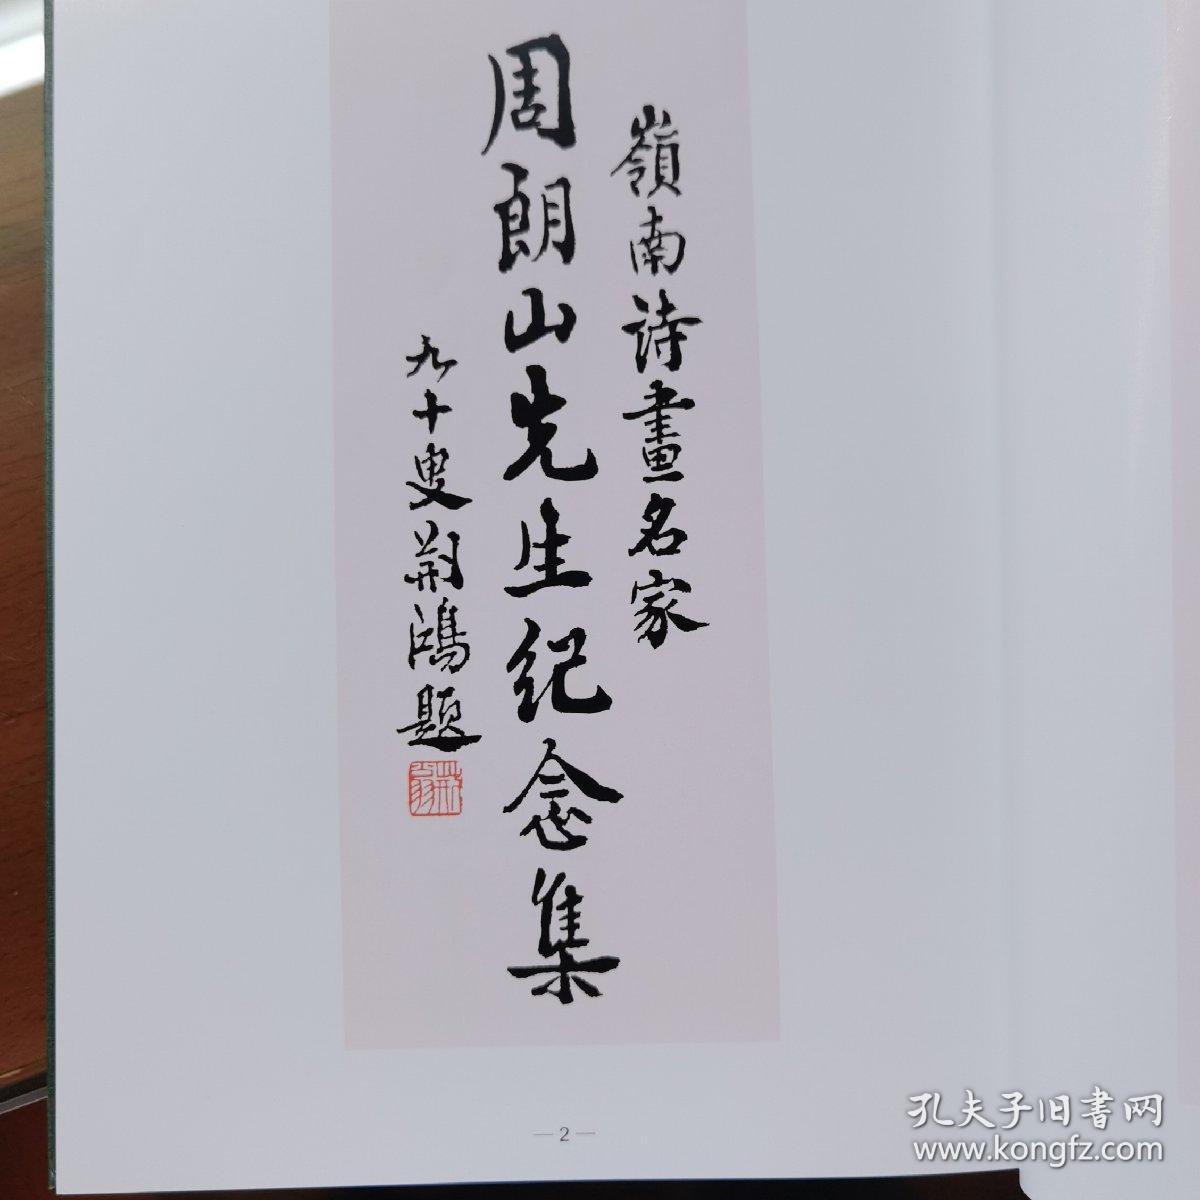 嶺南诗畫名家
周朗山先生纪念集
九十叟荆鴻题
— 2 —
孔夫子旧書网
www.kongfz.com